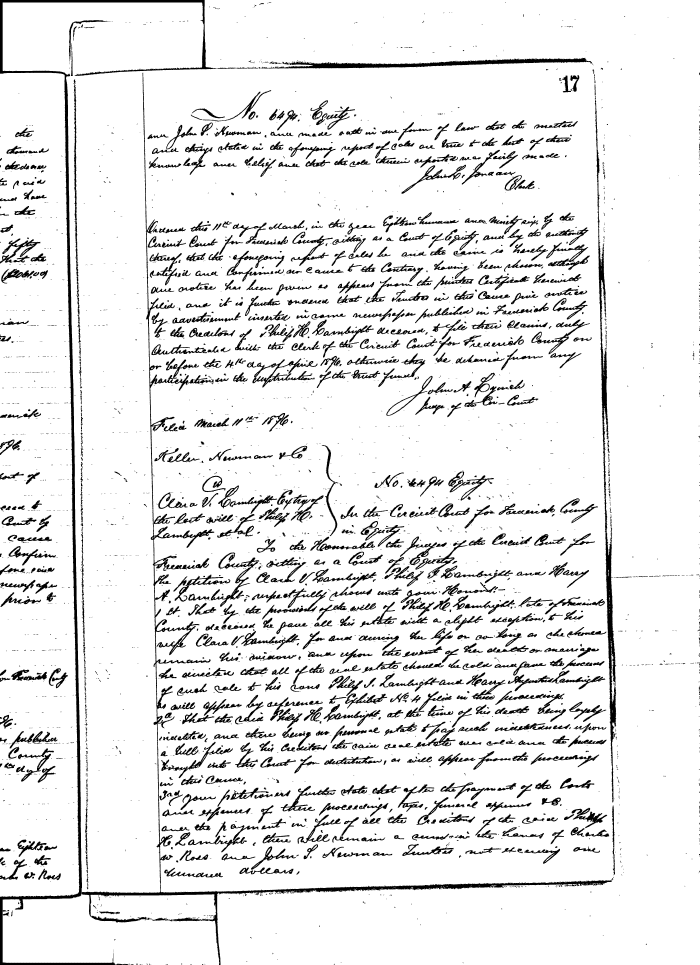 the
thousand
said
have
in the
fifty
that the
17
No. 6494. Equity.
and John S. Newman, and made oath in due form of law that the matters
and things stated in the aforegoing report of sales are true to the best of their
knowledge and belief and that the sale therein reported was fairly made.
John L. Jordan
Clerk.
Ordered this 11th day of March, in the year Eighteen hundred and ninety six, by the
Circuit Court for Frederick County, sitting as a Court of Equity, and by the authority
thereof, that the aforegoing report of sales be and the same is hereby finally
ratified and Confirmed no cause to the Contrary having been shown, although
due notice has been given as appears from the printers Certificate herewith
filed, and it is further ordered that the Trustees in this Cause give notice
by advertisement inserted in some newspaper published in Frederick County
to the Creditors of Philip H. Lambright deceased, to file their claims, duly
Authenticated with the Clerk of the Circuit Court for Frederick County on
or before the 4th day of April 1896, otherwise they be debarred from any
participation in the distribution of the trust funds.
John A Lynch
Judge of the Cir-Court
Filed March 11th 1896.
Keller, Newman & Co
vs
Clara V. Lambright Extrx of
the last will of Philip H.
Lambright et al.
No. 6494 Equity.
In the Circuit Court for Frederick County
in Equity.
To the Honorable the Judges of the Circuit Court for
Frederick County, sitting as a Court of Equity.
The petition of Clara V Lambright, Philip I. Lambright, and Harry
A. Lambright, respectfully shows unto your Honors:
1st. That by the provisions of the will of Philip H. Lambright, late of Frederick
County, deceased, he gave all his estate with a slight exception, to his
wife Clara V Lambright, for and during her life or so long as she should
remain his widow, and upon the event of her death or marriage
he directed that all of the real estate should be sold and gave the proceeds
of such sale to his sons Philip I. Lambright and Harry Augustus Lambright
as will appear by reference to Exhibit No. 4 filed in these proceedings.
2d. That the said Philip H. Lambright, at the time of his death being largely
indebted, and there being no personal estate to pay such indebtedness, upon
a bill filed by his creditors the said real estate was sold and the proceeds
brought into this Court for distribution, as will appear from the proceedings
in this cause.
3rd your petitioners further state that after the payment of the Costs
and expenses of these proceedings, taxes, funeral expenses &c.
and the payment in full of all the Creditors of the said Philip
H. Lambright, there will remain a sum in the hands of Charles
W. Ross and John S. Newman Trustees, not exceeding one
hundred dollars,
out of
Court by
cause
Confirm
newspaper
prior to
published
County
day of
Eighteen
of the
W. Ross